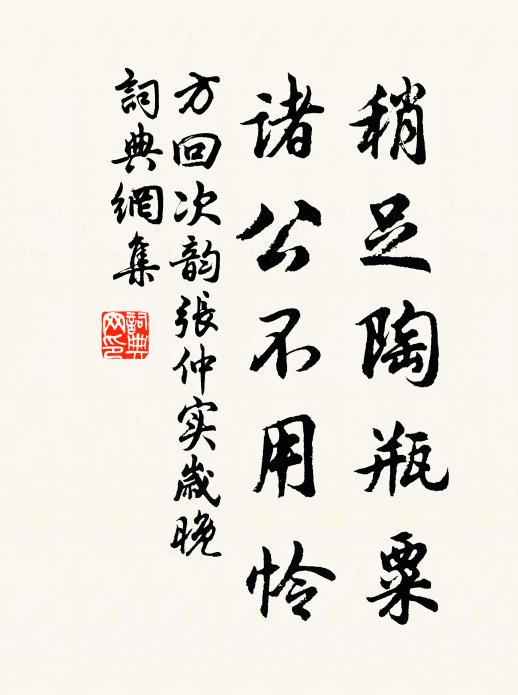 稍足陶瓶粟
诸公不用怜
方回次韵張仲实歲晚
詞典網集
詞典网印